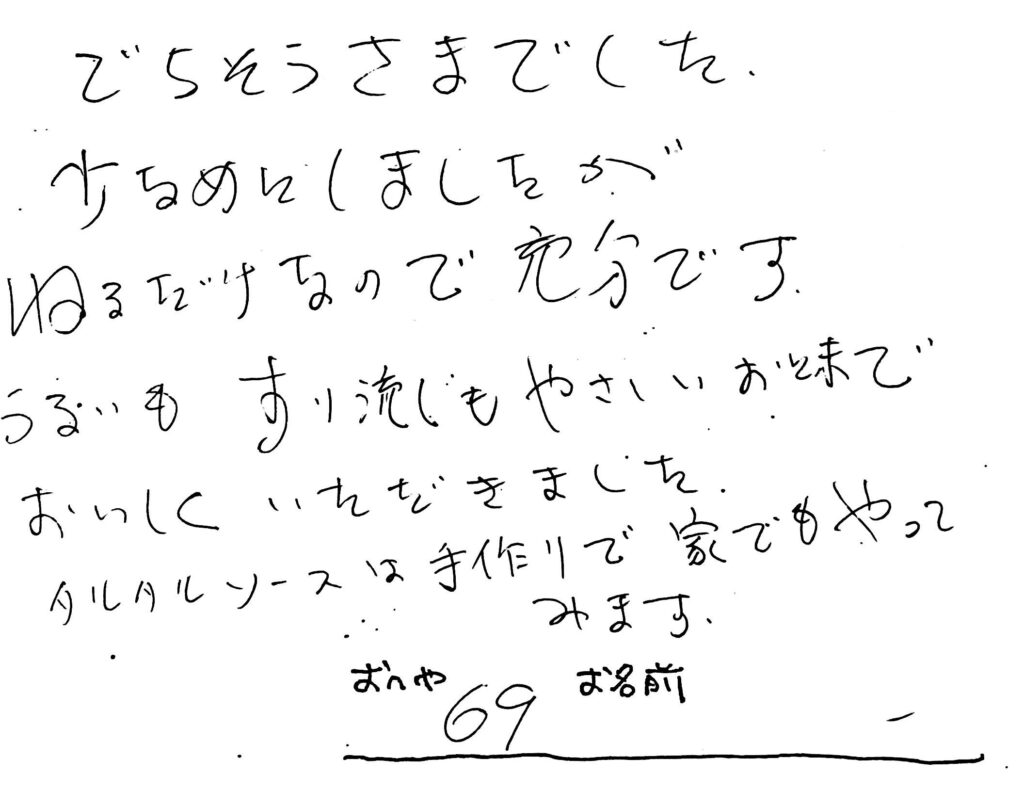 ごちそうさまでした.
少なめにしましたが
ねるだけなので充分です.
うるいも すり流しもやさしいお味で
おいしくいただきました.
タルタルソースは手作りで家でもやって
みます.
おへや 69 お名前